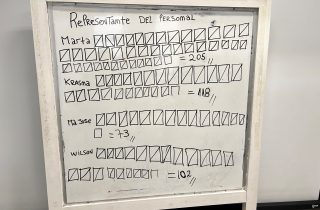 Representante del Personal
Marta
= 205
Krasna
= 118
Mª Jose
= 73
Wilson
= 102